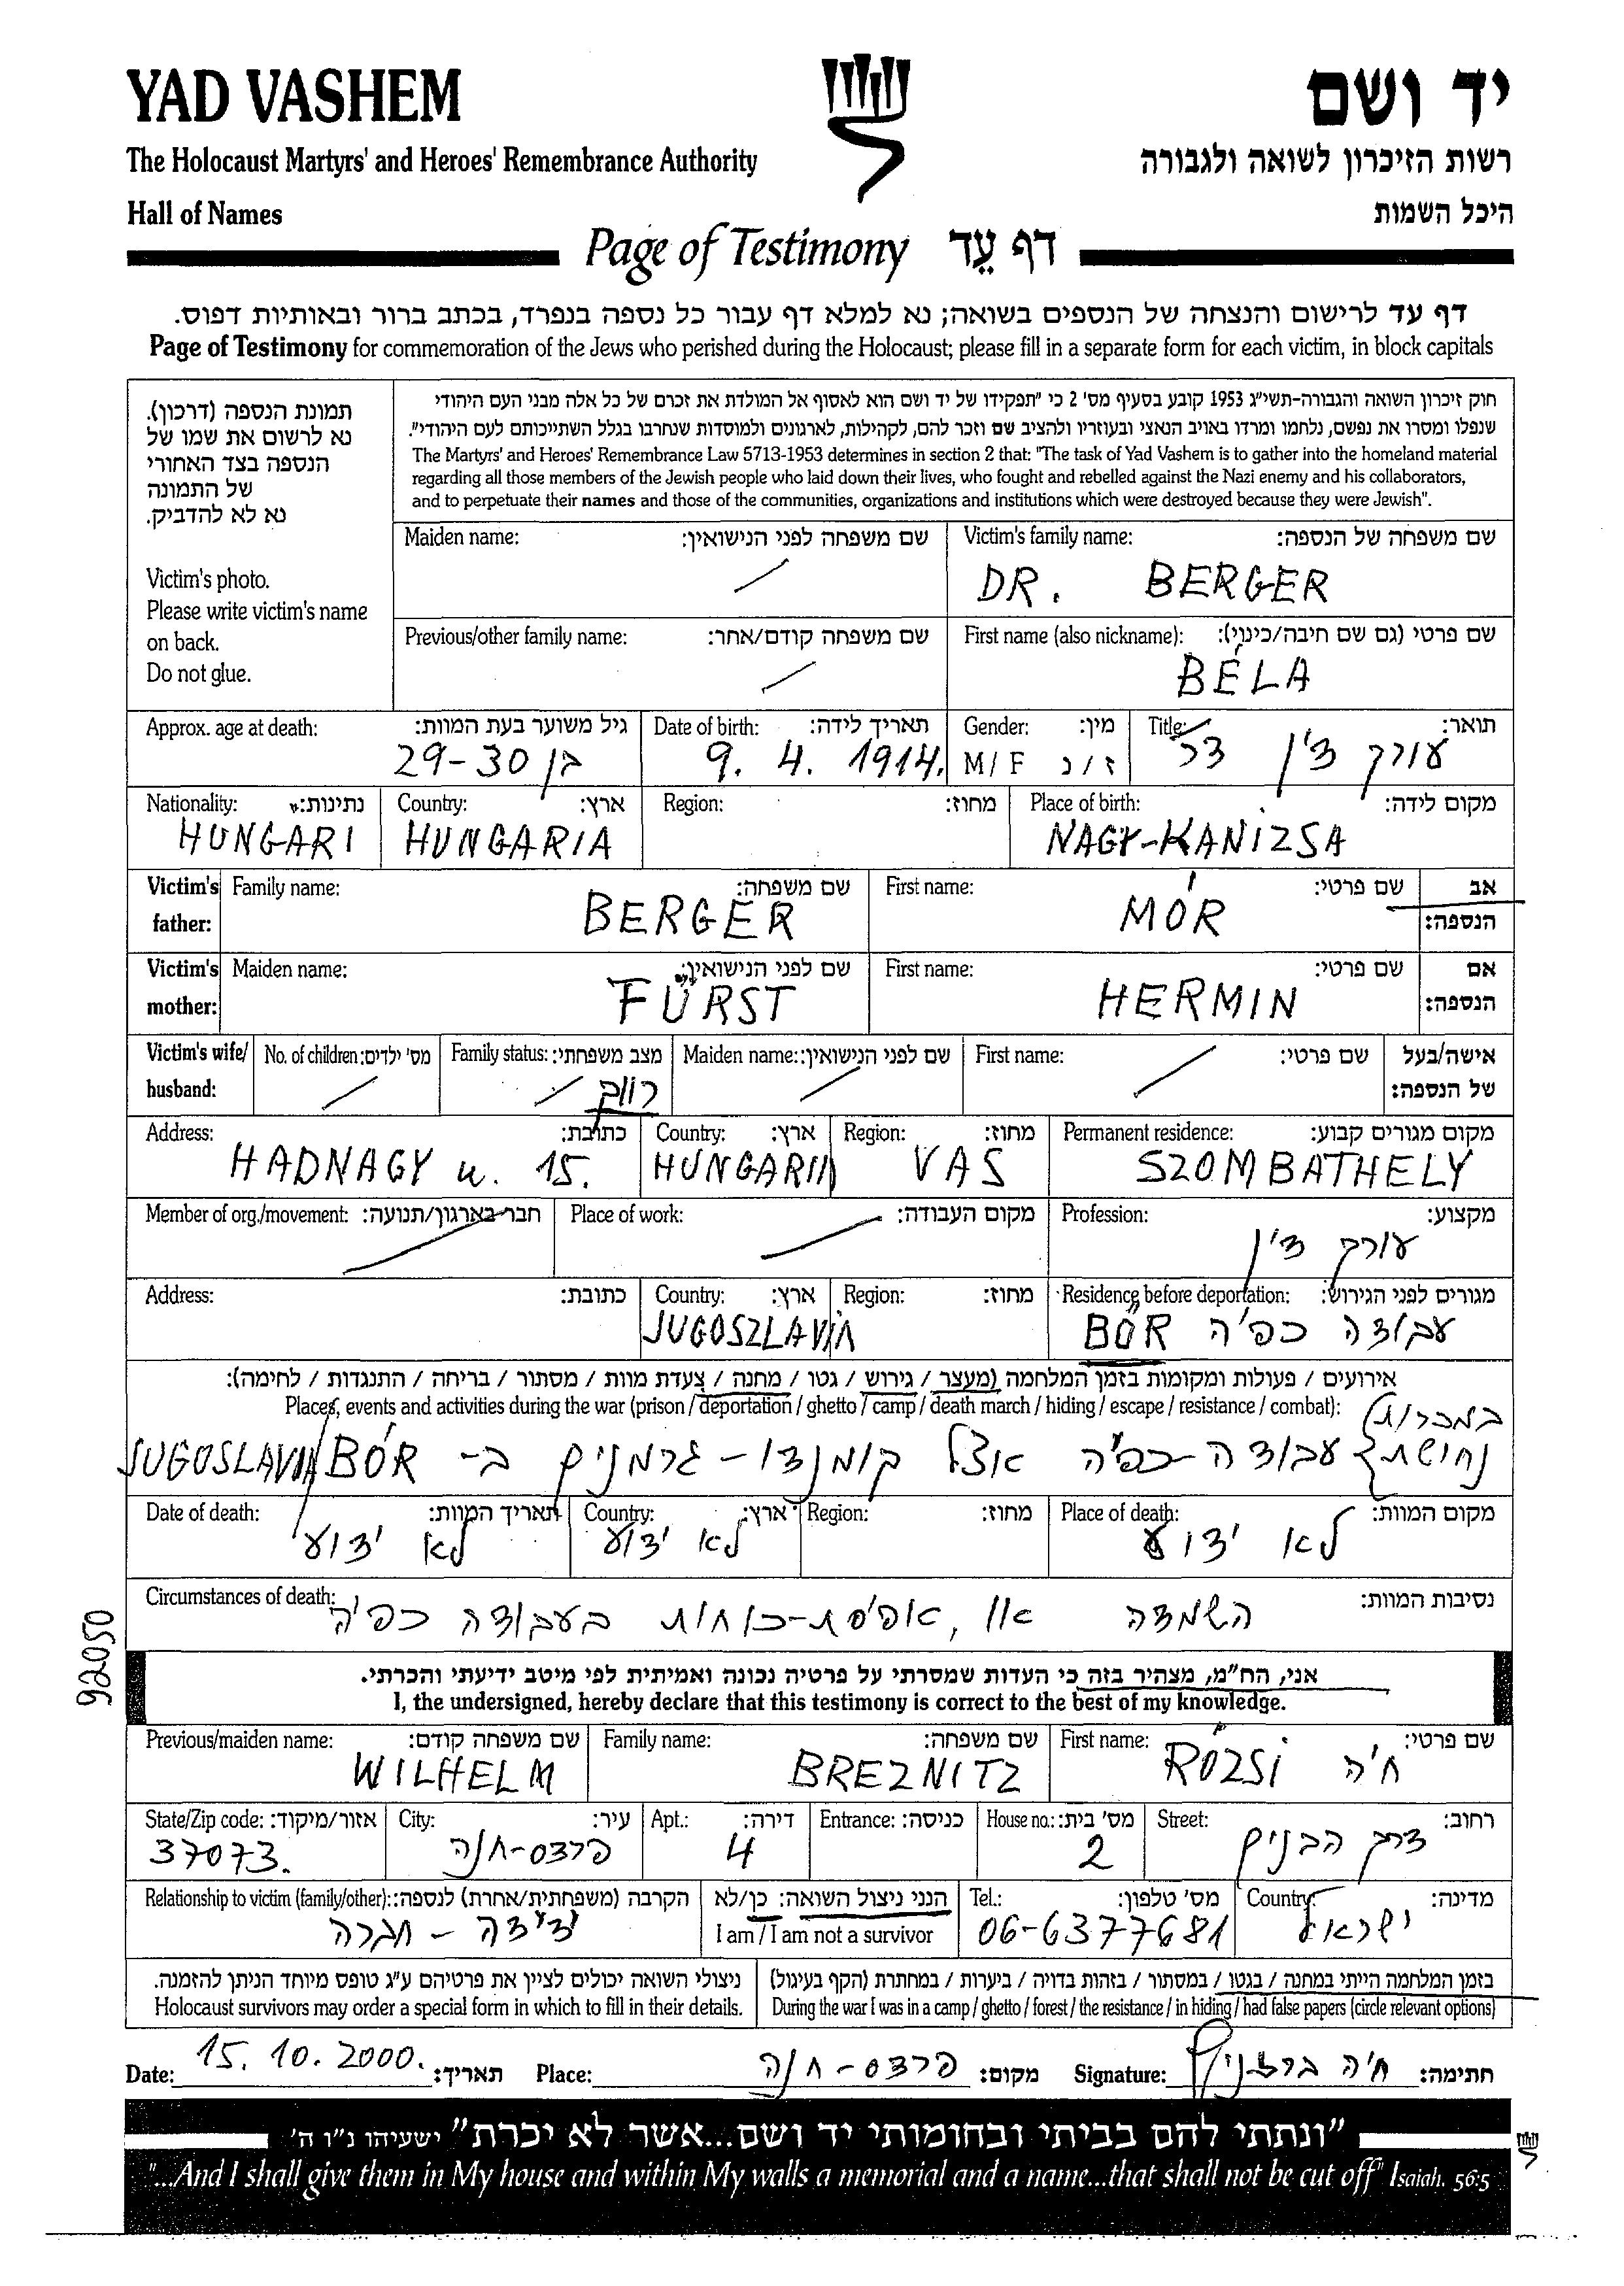 YAD VASHEM
יד ושם
The Holocaust Martyrs' and Heroes' Remembrance Authority
רשות הזיכרון לשואה ולגבורה
Hall of Names
היכל השמות
Page of Testimony דף עֵד
דף עד לרישום והנצחה של הנספים בשואה; נא למלא דף עבור כל נספה בנפרד, בכתב ברור ובאותיות דפוס.
Page of Testimony for commemoration of the Jews who perished during the Holocaust; please fill in a separate form for each victim, in block capitals
תמונת הנספה (דרכון).
נא לרשום את שמו של
הנספה בצד האחורי
של התמונה
נא לא להדביק.
Victim's photo.
Please write victim's name
on back.
Do not glue.
חוק זיכרון השואה והגבורה-תשי"ג 1953 קובע בסעיף מס' 2 כי "תפקידו של יד ושם הוא לאסוף אל המולדת את זכרם של כל אלה מבני העם היהודי
שנפלו ומסרו את נפשם, נלחמו ומרדו באויב הנאצי ובעוזריו ולהציב שם וזכר להם, לקהילות, לארגונים ולמוסדות שנחרבו בגלל השתייכותם לעם היהודי".
The Martyrs' and Heroes' Remembrance Law 5713-1953 determines in section 2 that: "The task of Yad Vashem is to gather into the homeland material
regarding all those members of the Jewish people who laid down their lives, who fought and rebelled against the Nazi enemy and his collaborators,
and to perpetuate their names and those of the communities, organizations and institutions which were destroyed because they were Jewish".
Maiden name: שם משפחה לפני הנישואין: Victim's family name: שם משפחה של הנספה:
DR. BERGER
Previous/other family name: שם משפחה קודם/אחר: First name (also nickname): שם פרטי (גם שם חיבה/כינוי):
BÉLA
Approx. age at death: גיל משוער בעת המוות: Date of birth: תאריך לידה: Gender: מין: Title: תואר:
בן 29-30 9. 4. 1914. M/F ז/נ עורך דין דר
Nationality: נתינות: Country: ארץ: Region: מחוז: Place of birth: מקום לידה:
HUNGARI HUNGARIA NAGY-KANIZSA
Victim's father: Family name: שם משפחה: First name: שם פרטי: אב הנספה:
BERGER MÓR
Victim's mother: Maiden name: שם לפני הנישואין: First name: שם פרטי: אם הנספה:
FÜRST HERMIN
Victim's wife/ husband: No. of children: מס' ילדים: Family status: מצב משפחתי: Maiden name: שם לפני הנישואין: First name: שם פרטי: אישה/בעל של הנספה:
רווק
Address: כתובת: Country: ארץ: Region: מחוז: Permanent residence: מקום מגורים קבוע:
HADNAGY u. 15. HUNGARIA VAS SZOMBATHELY
Member of org./movement: חבר בארגון/תנועה: Place of work: מקום העבודה: Profession: מקצוע:
עורך דין
Address: כתובת: Country: ארץ: Region: מחוז: Residence before deportation: מגורים לפני הגירוש:
JUGOSZLAVIA עבודה כפי'ה BÖR
אירועים / פעולות ומקומות בזמן המלחמה (מעצר / גירוש / גטו / מחנה / צעדת מוות / מסתור / בריחה / התנגדות / לחימה):
Places, events and activities during the war (prison / deportation / ghetto / camp / death march / hiding / escape / resistance / combat):
במכרות
נחושת עבודה-כפי'ה אצל קומנדו-גרמנים ב- BÓR JUGOSLAVIA
Date of death: תאריך המוות: Country: ארץ: Region: מחוז: Place of death: מקום המוות:
לא ידוע לא ידוע לא ידוע
Circumstances of death: נסיבות המוות:
השמדה או, אפיסת-כוחות בעבודה כפי'ה
92050
אני, הח"מ, מצהיר בזה כי העדות שמסרתי על פרטיה נכונה ואמיתית לפי מיטב ידיעתי והכרתי.
I, the undersigned, hereby declare that this testimony is correct to the best of my knowledge.
Previous/maiden name: שם משפחה קודם: Family name: שם משפחה: First name: שם פרטי:
WILHELM BREZNITZ RÓZSI חיה
State/Zip code: אזור/מיקוד: City: עיר: Apt.: דירה: Entrance: כניסה: House no.: מס' בית: Street: רחוב:
37073. פרדס-חנה 4 2 דרך הבנים
Relationship to victim (family/other): הקרבה (משפחתית/אחרת) לנספה: הנני ניצול השואה: כן/לא Tel.: מס' טלפון: Country: מדינה:
ידידה - חברה I am / I am not a survivor 06-6377681 ישראל
ניצולי השואה יכולים לציין את פרטיהם ע"ג טופס מיוחד הניתן להזמנה. בזמן המלחמה הייתי במחנה / בגטו / במסתור / בזהות בדויה / ביערות / במחתרת (הקף בעיגול)
Holocaust survivors may order a special form in which to fill in their details. During the war I was in a camp / ghetto / forest / the resistance / in hiding / had false papers (circle relevant options)
Date: 15. 10. 2000. תאריך: Place: פרדס-חנה מקום: Signature: חיה ברזניץ חתימה:
"ונתתי להם בביתי ובחומותי יד ושם...אשר לא יכרת" ישעיהו נ"ו ה'
"...And I shall give them in My house and within My walls a memorial and a name...that shall not be cut off" Isaiah. 56:5